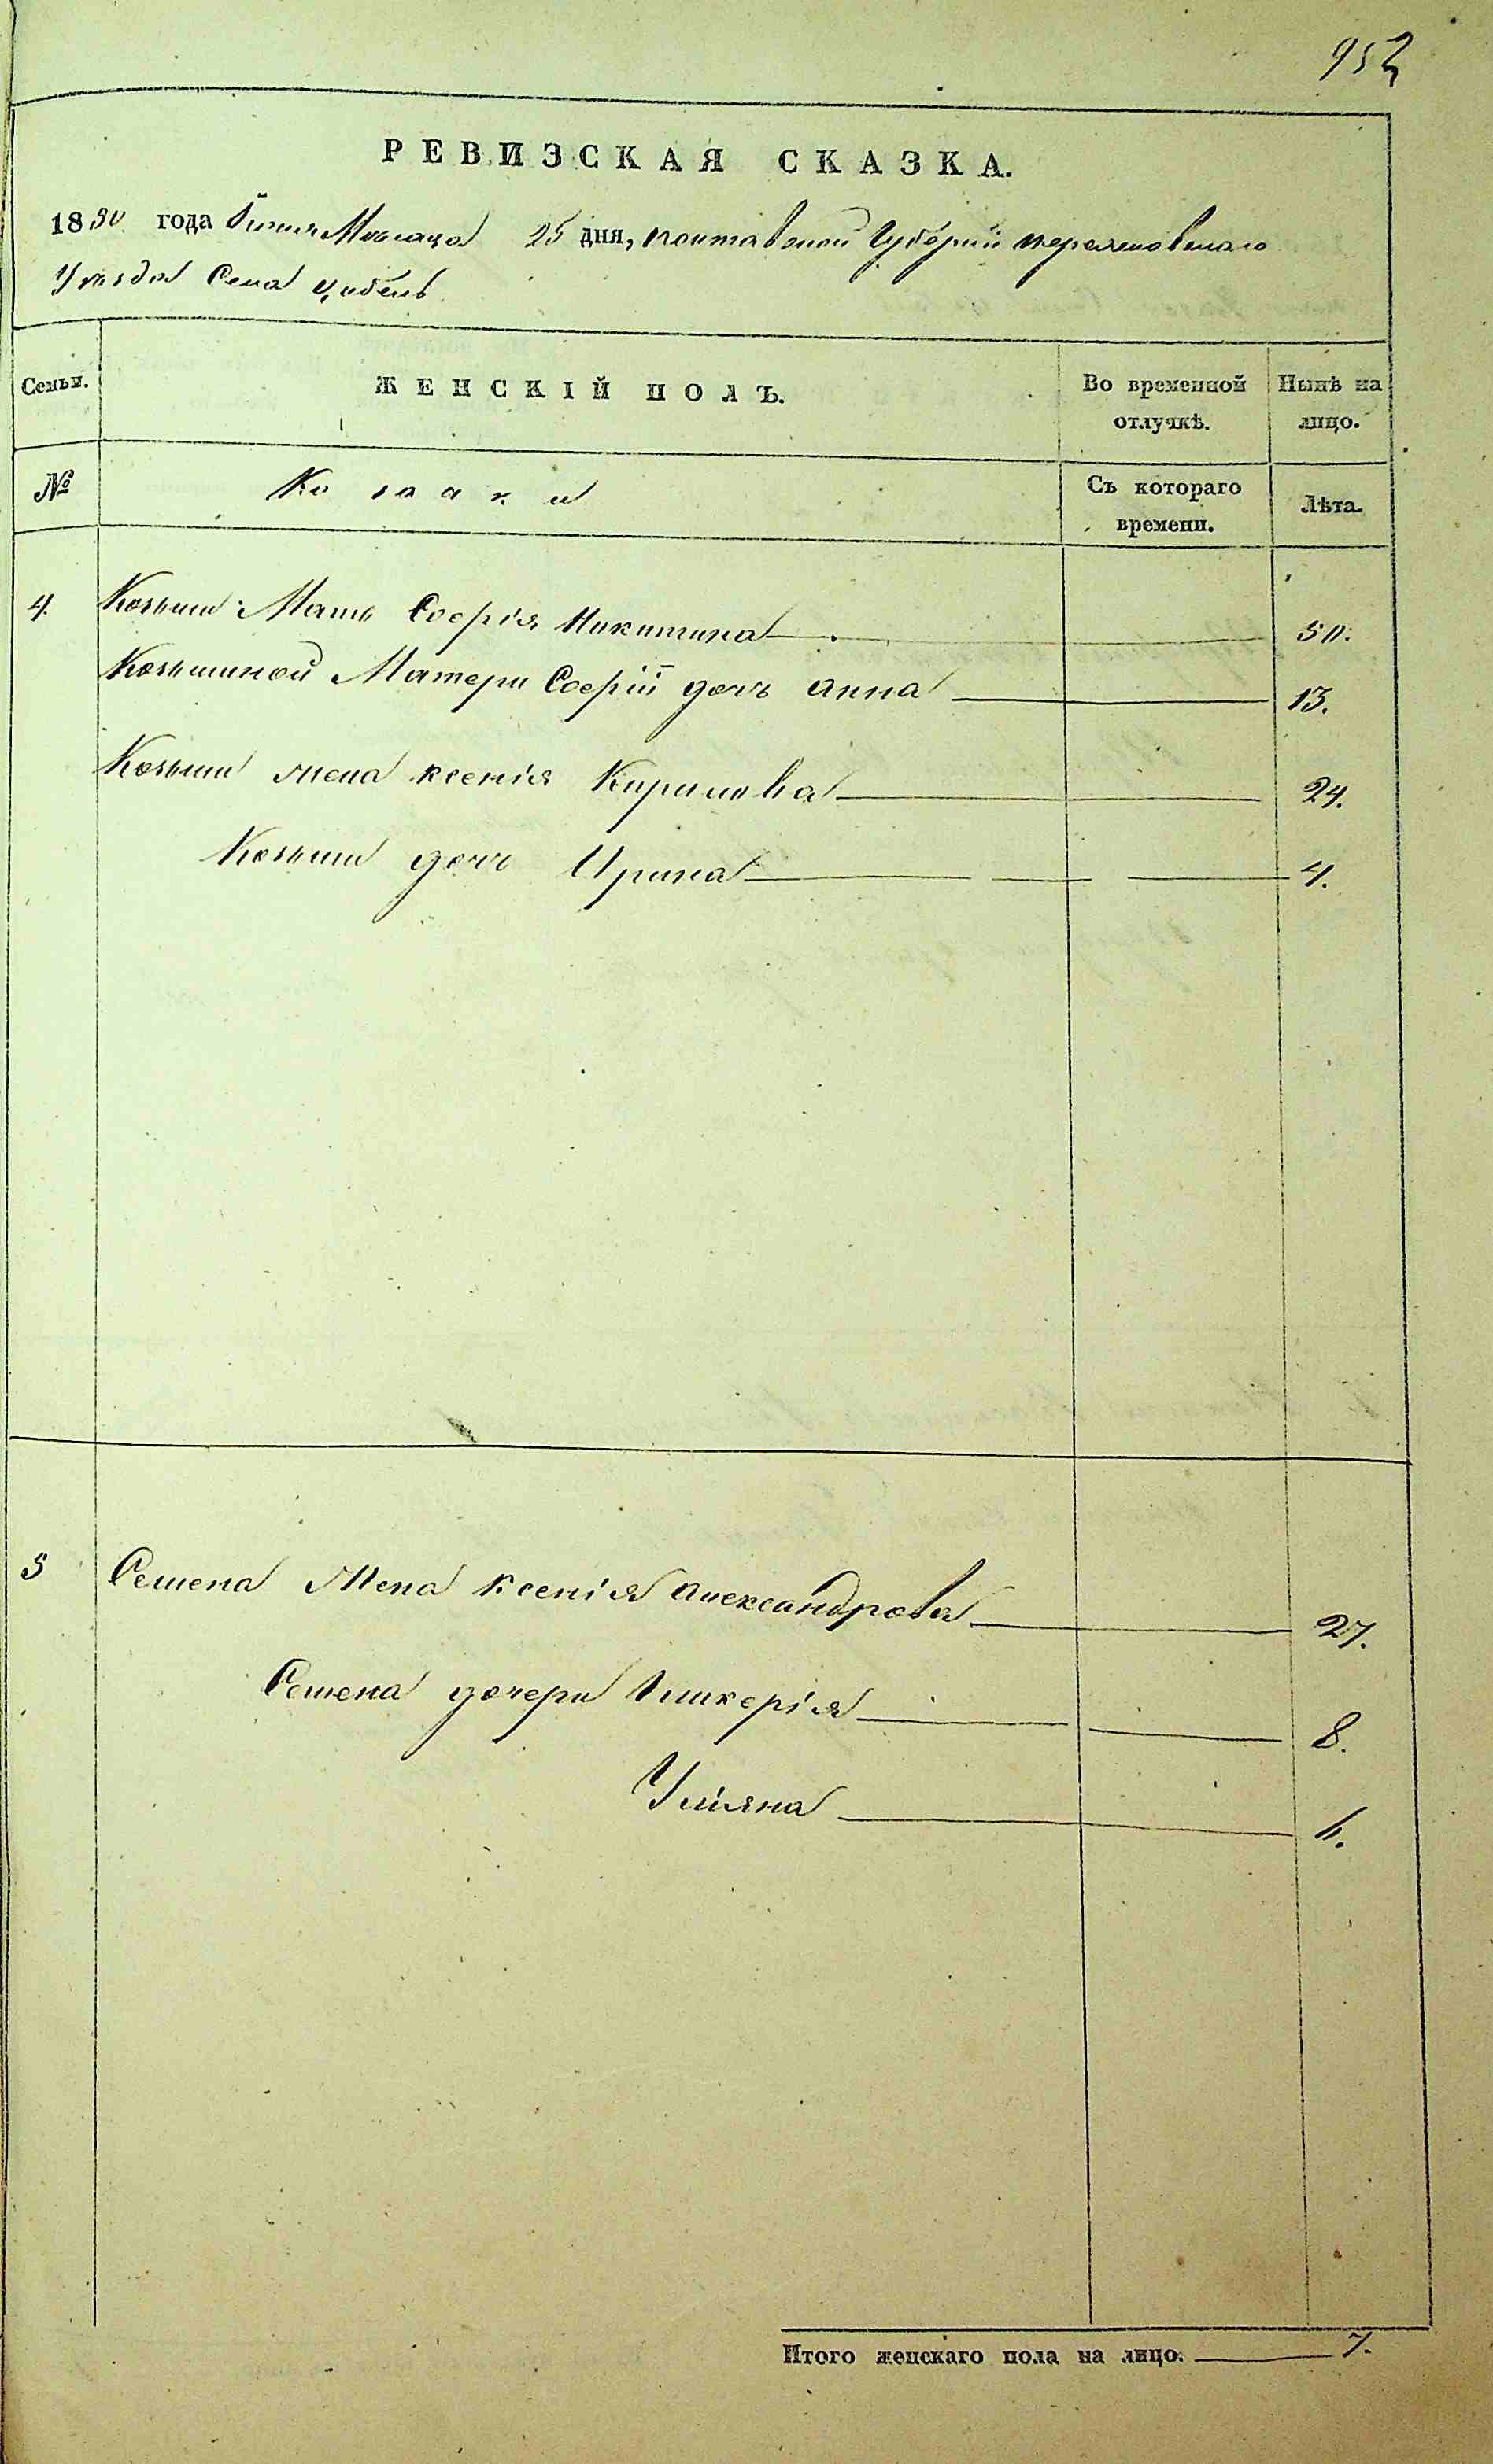 952
РЕВИЗСКАЯ СКАЗКА.
1850 года Іюня Мѣсяца 25 дня, полтавской Губерніи переяславскаго
Уѣзда Села Цибель
Семьи. ЖЕНСКІЙ ПОЛЪ. Во временной отлучкѣ. Нынѣ на лицо.
№ Козаки Съ котораго времени. Лѣта.
4. Козьми Мать Софія Никитина 50.
Козьминой Матери Софіи дочь Анна 13.
Козьми жена Ксенія Кирилова 24.
Козьми дочь Ирина 4.
5 Семена жена Ксенія Александрова 27.
Семена дочери Гликерія 8.
Уліяна 6.
Итого женскаго пола на лицо. 7.